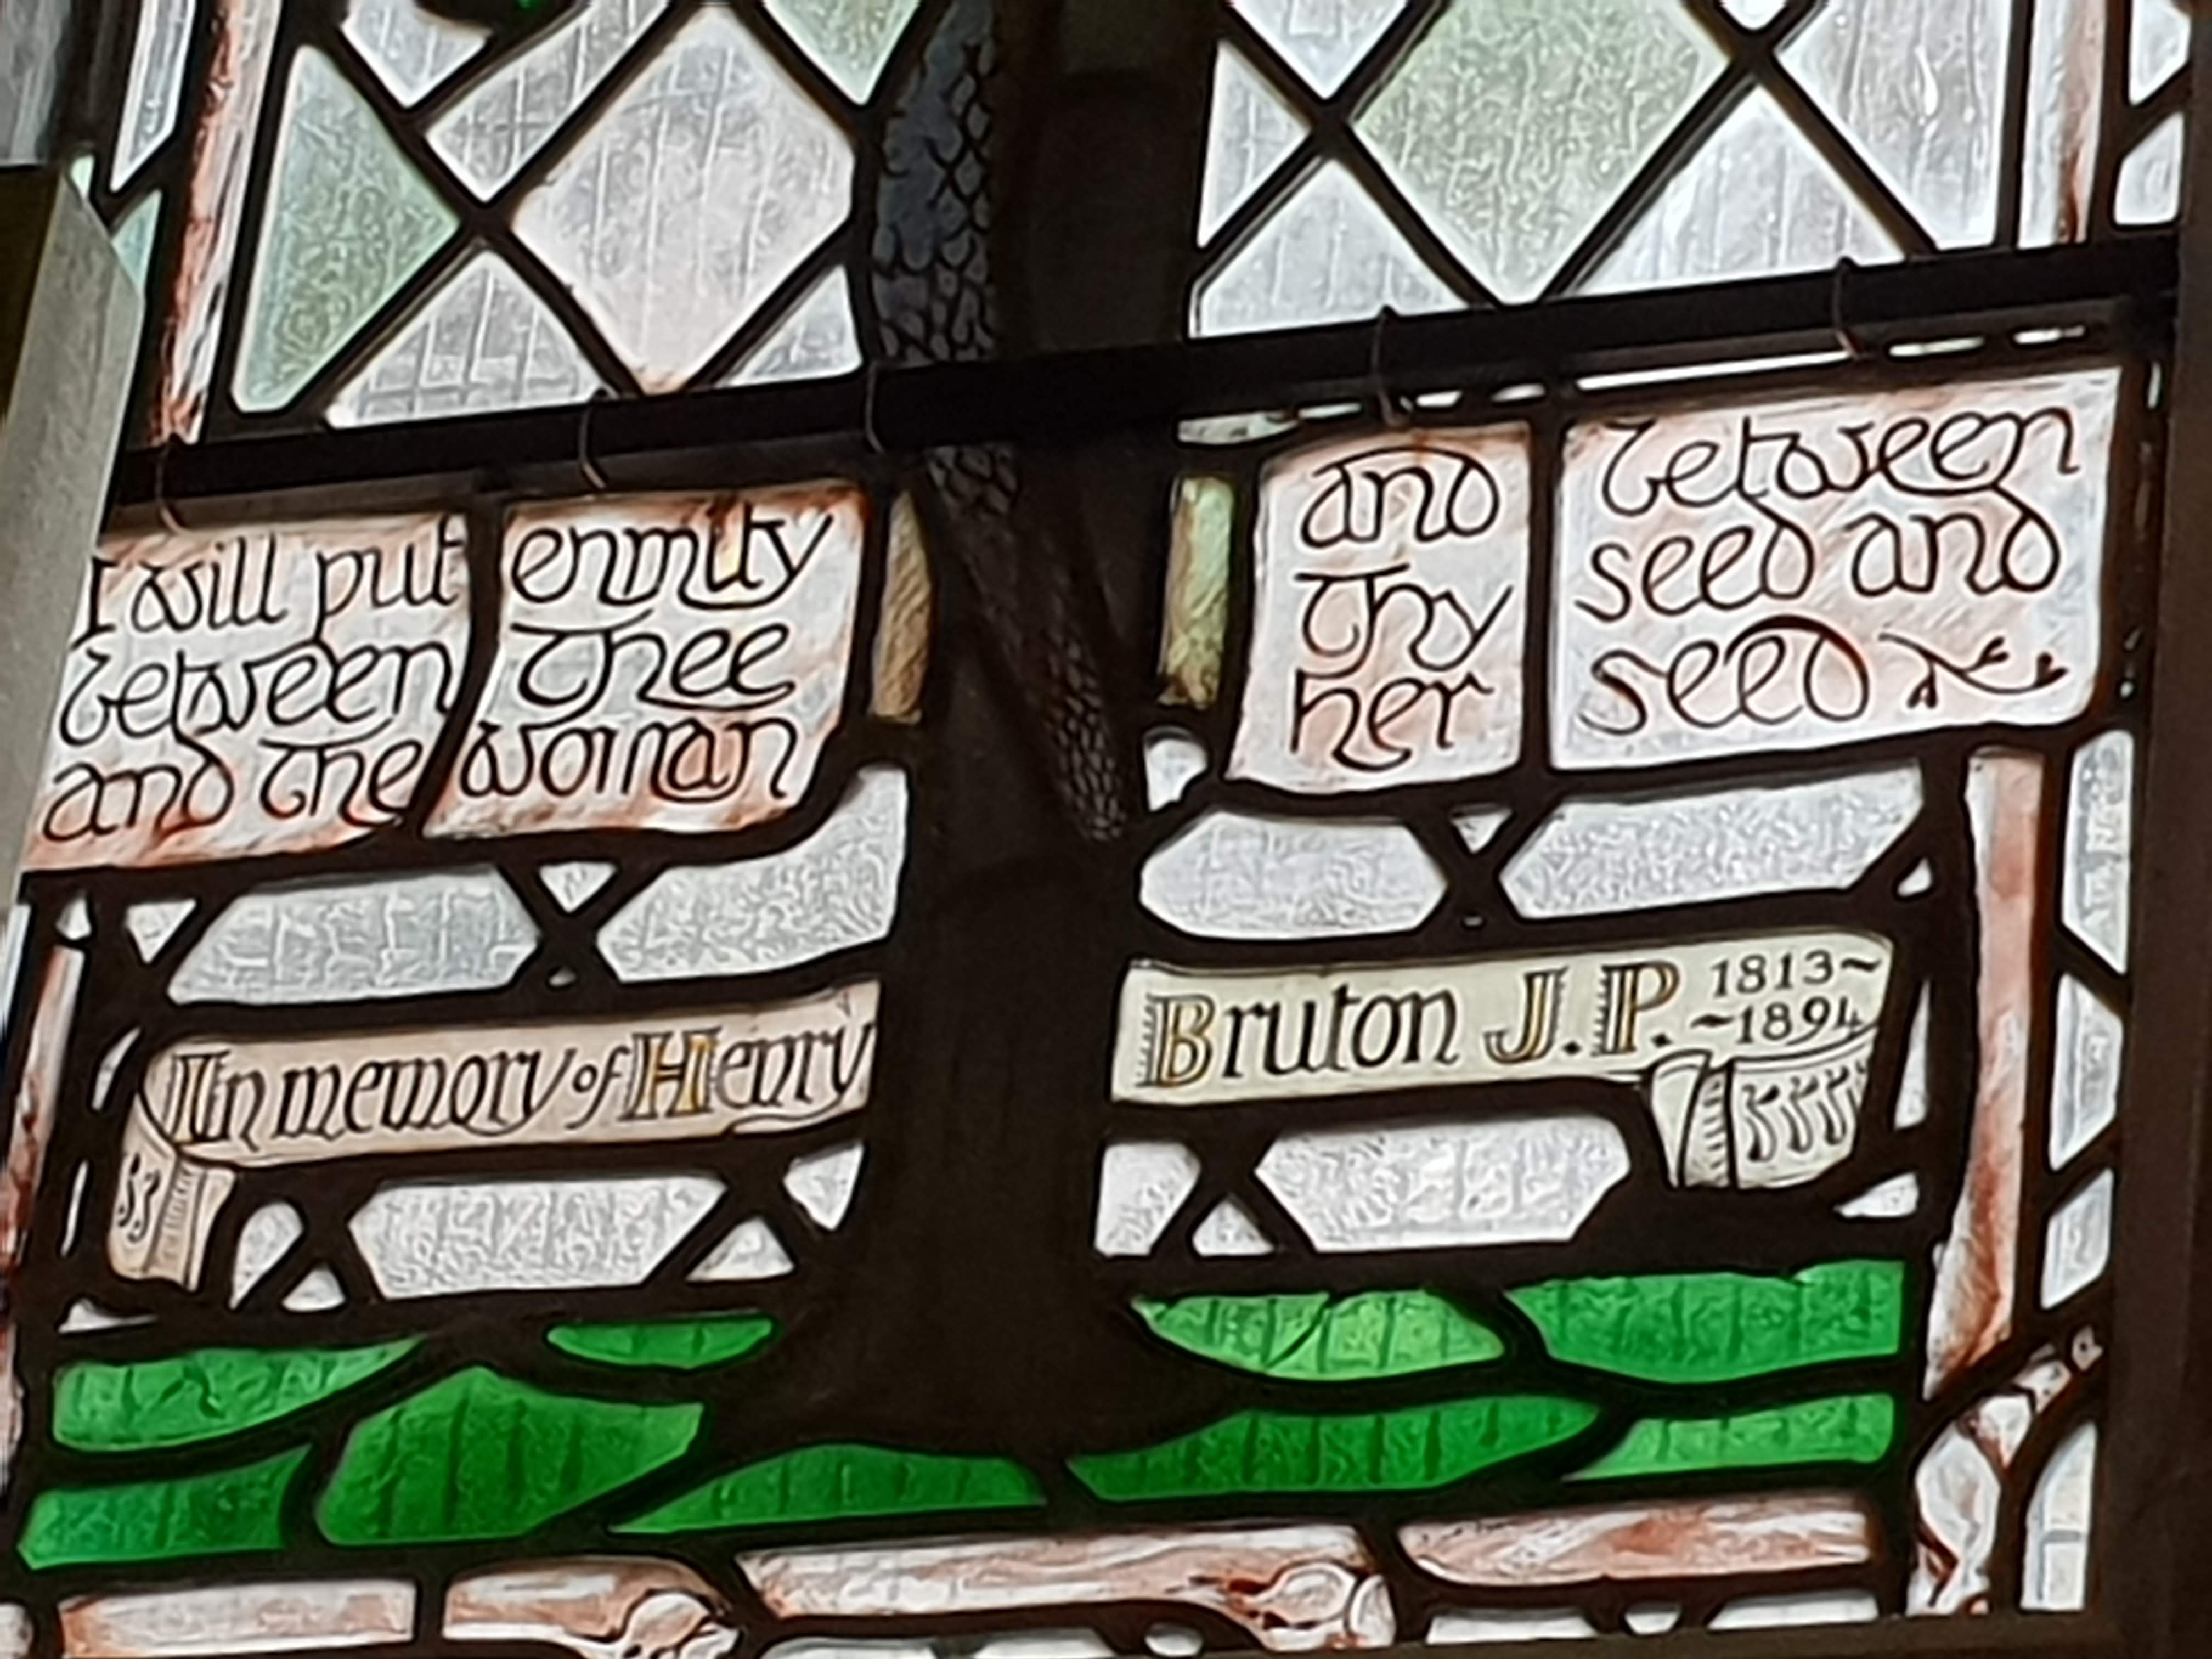 I will put enmity
between thee
and the woman
and between
thy seed and
her seed
In memory of Henry
Bruton J.P. 1813~
~1894